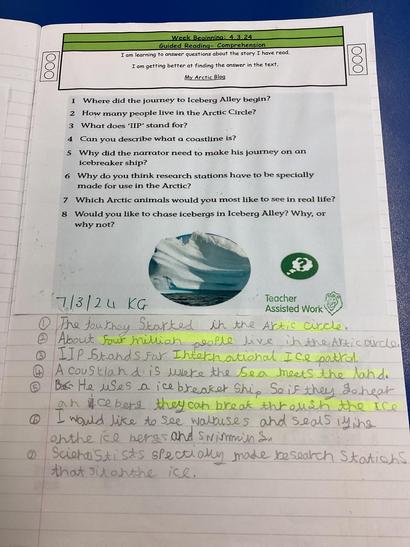 Week Beginning: 4.3.24
Guided Reading- Comprehension
I am learning to answer questions about the story I have read.
I am getting better at finding the answer in the text.
My Arctic Blog
1 Where did the journey to Iceberg Alley begin?
2 How many people live in the Arctic Circle?
3 What does 'IIP' stand for?
4 Can you describe what a coastline is?
5 Why did the narrator need to make his journey on an
icebreaker ship?
6 Why do you think research stations have to be specially
made for use in the Arctic?
7 Which Arctic animals would you most like to see in real life?
8 Would you like to chase icebergs in Iceberg Alley? Why, or
why not?
7/3/24 KG
Teacher
Assisted Work
① The Journey Started in the Artic circle.
② About four million people live in the Artic circle.
③ IIP Stands For International Ice patrol
④ A coustland is were the Sea meets the land.
⑤ He uses a ice breaker Ship So if they go near
an iceberg they can break through the ice
⑥ I would like to see waluses and seals lying
on the ice bergs and swimming.
Scientistists specially made research Stations
that sit on the ice.